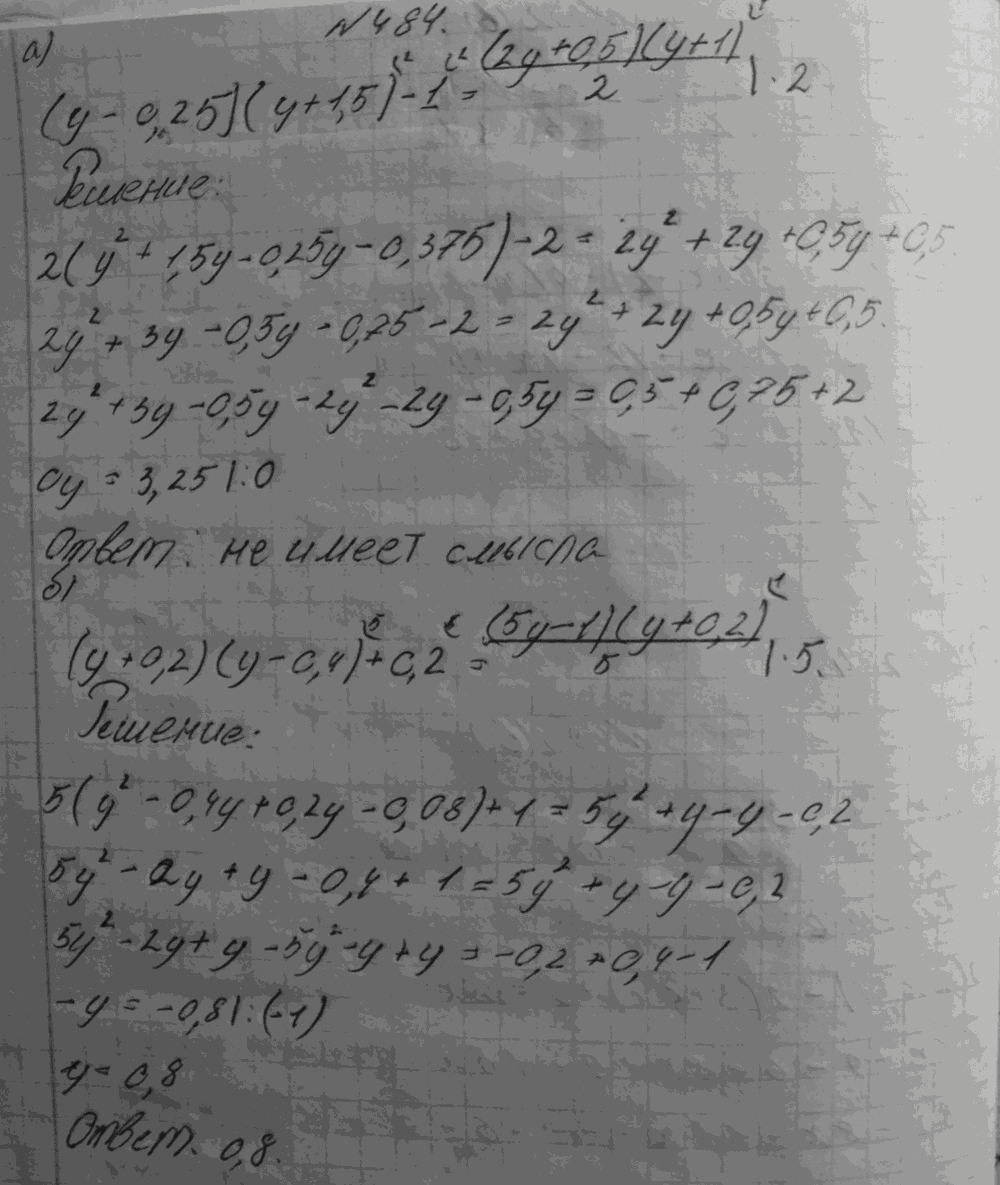 №484.
а)
(y - 0,25)(y + 1,5) - 1 = (2y + 0,5)(y + 1) / 2 | · 2
Решение:
2(y² + 1,5y - 0,25y - 0,375) - 2 = 2y² + 2y + 0,5y + 0,5
2y² + 3y - 0,5y - 0,75 - 2 = 2y² + 2y + 0,5y + 0,5.
2y² + 3y - 0,5y - 2y² - 2y - 0,5y = 0,5 + 0,75 + 2
0y = 3,25 | : 0
Ответ: не имеет смысла
б)
(y + 0,2)(y - 0,4) + 0,2 = (5y - 1)(y + 0,2) / 5 | · 5.
Решение:
5(y² - 0,4y + 0,2y - 0,08) + 1 = 5y² + y - y - 0,2
5y² - 2y + y - 0,4 + 1 = 5y² + y - y - 0,2
5y² - 2y + y - 5y² - y + y = -0,2 + 0,4 - 1
-y = -0,8 | : (-1)
y = 0,8
Ответ. 0,8.